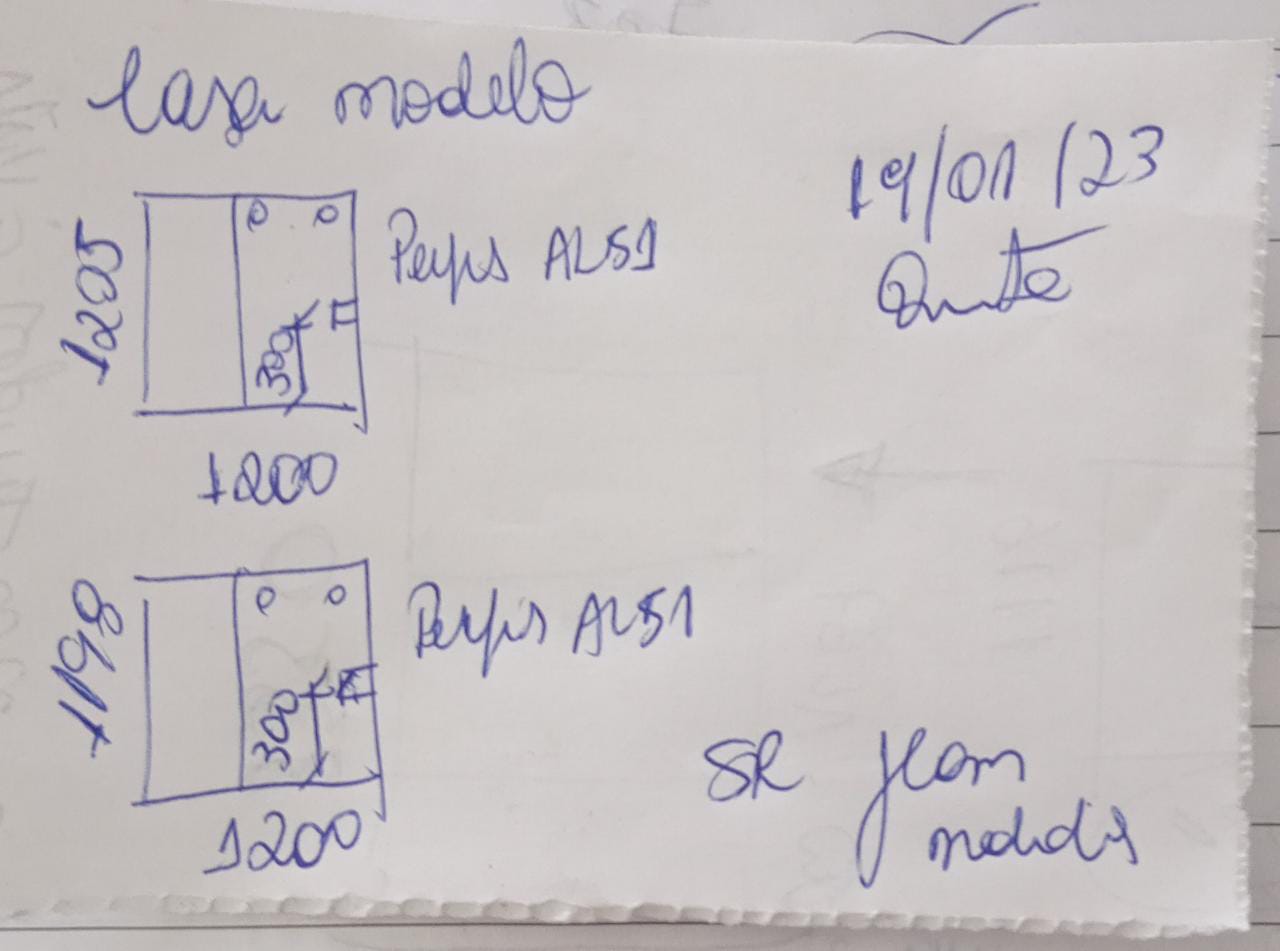 Casa modelo
19/01/23
Quinta
1205
Perfis AL51
300
1200
1198
Perfis AL51
300
1200
SR Jean
medidas